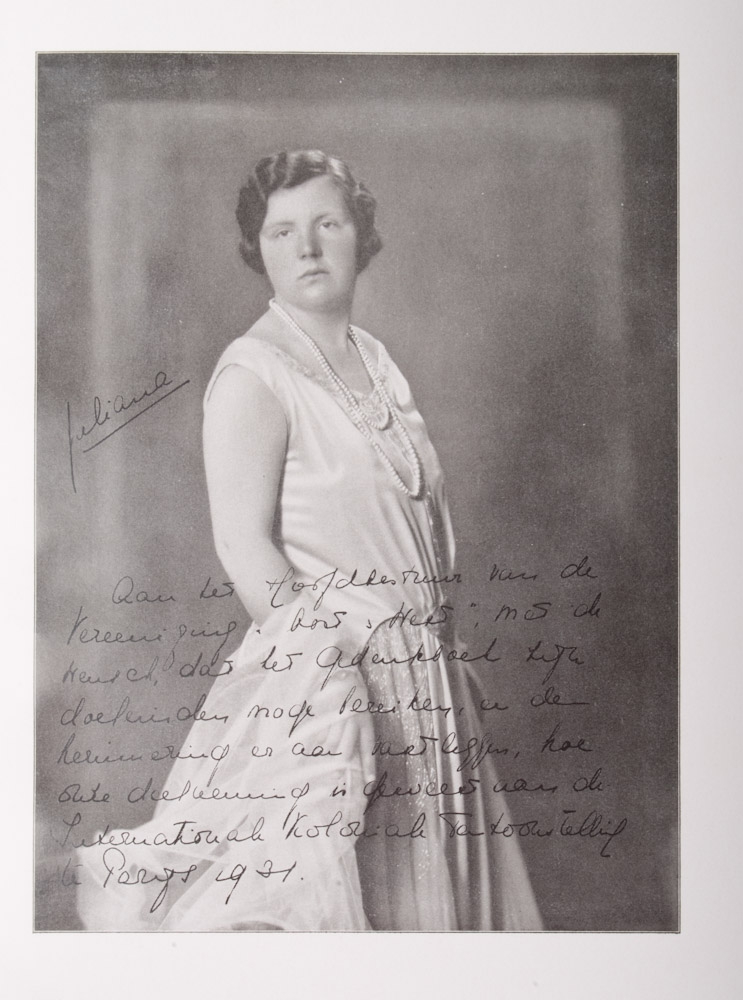 Juliana
Aan het Hoofdbestuur van de
Vereeniging "Oost en West", met de
wensch, dat het Gedenkboek zijn
doeleinden moge bereiken, en de
herinnering er aan vastleggen, hoe
onze deelneming is geweest aan de
Internationale Koloniale Tentoonstelling
te Parijs 1931.